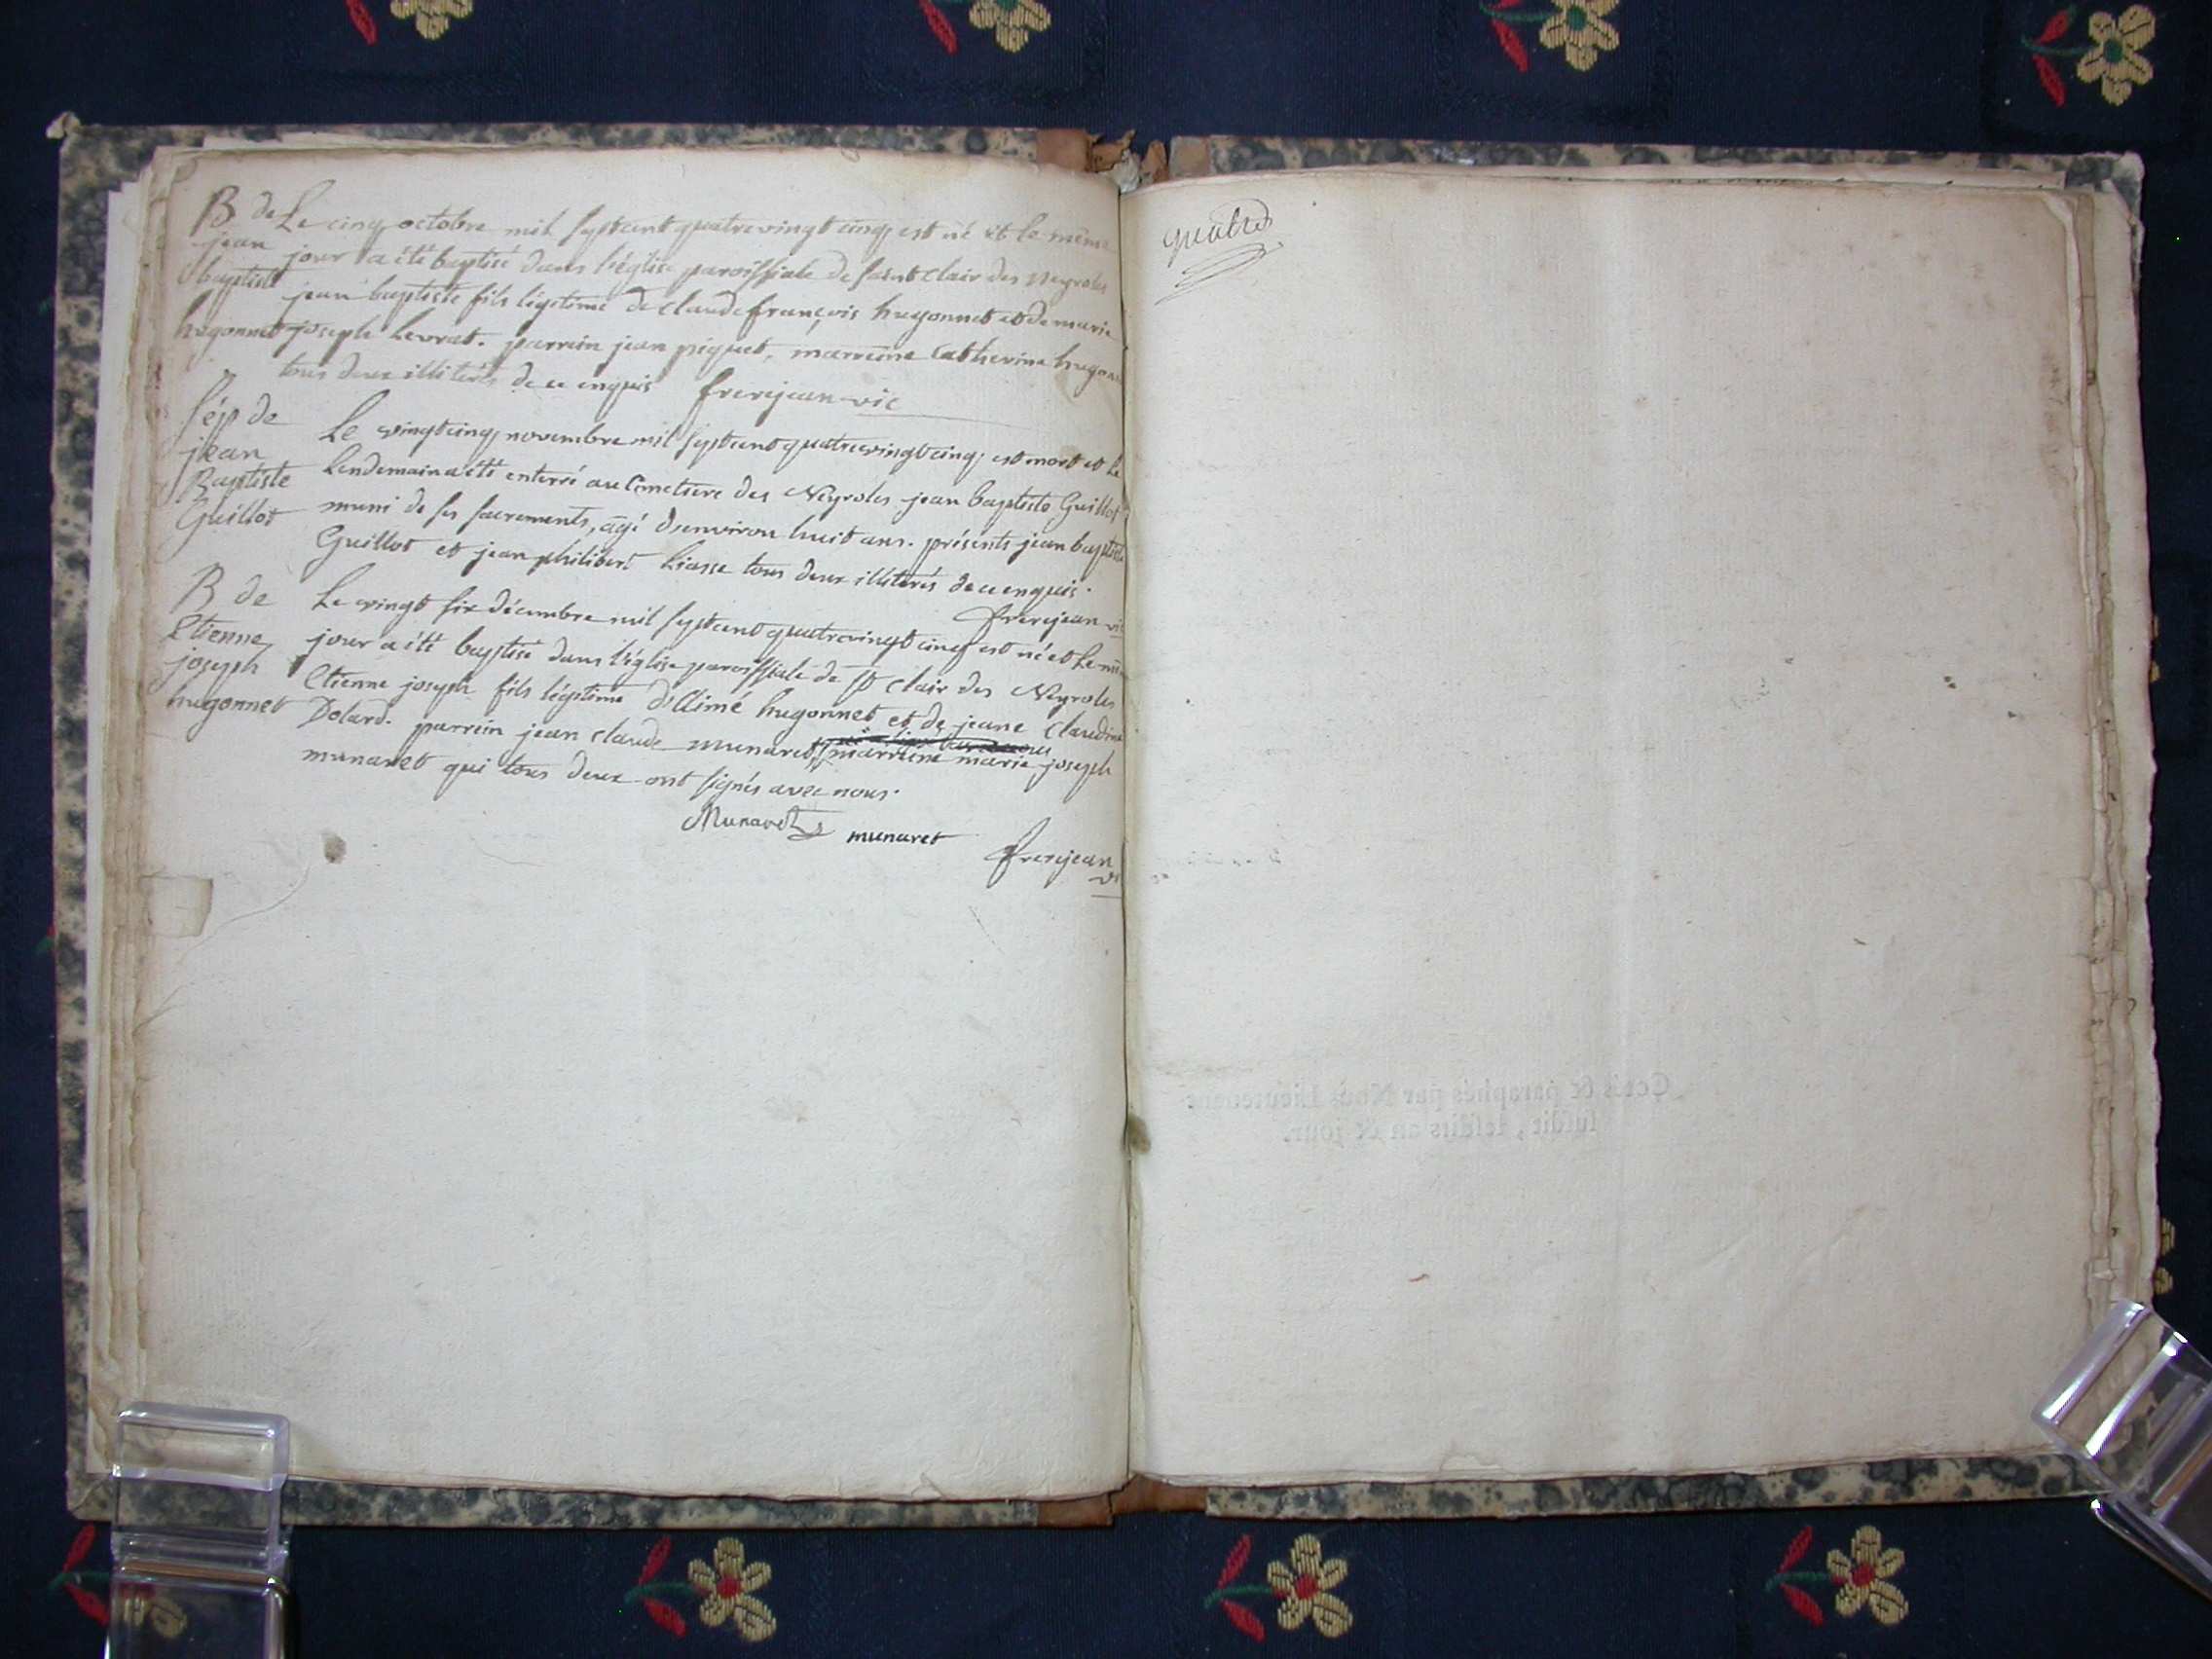 B de Le cinq octobre mil septcent quatrevingt cinq est né et le même
jean jour a été baptisé dans l'église paroissiale de saint clair des Neyroles
baptiste jean baptiste fils légitime de claude françois hugonnet et de marie
hugonnet joseph Levrat. parrein jean piquet, marreine Catherine
tous deux illiterés de ce enquis frerejean vic
sép de
jean Le vingtcinq novembre mil septcent quatrevingt cinq est mort et le
Baptiste lendemain a été enterré au Cimetiere des Neyroles jean baptiste Guillot
Guillot muni de ses sacrements, agé d'environ huit ans. présents jean baptiste
Guillot et jean philibert Liasse tous deux illiterés de ce enquis.
frerejean vic
B de Le vingt six décembre mil septcent quatrevingt cinq est né et le
Etienne jour a été baptisé dans l'église paroissiale de St clair des Neyroles
joseph Etienne joseph fils légitime d'Aimé hugonnet et de jeane Claudine
hugonnet Dolard. parrein jean claude munaret, marreine marie joseph
munaret qui tous deux ont signés avec nous.
Munaret munaret frerejean
vic
quatre
Cotés & paraphés par Nous Lieutenant
susdit, lesdits an & jour.